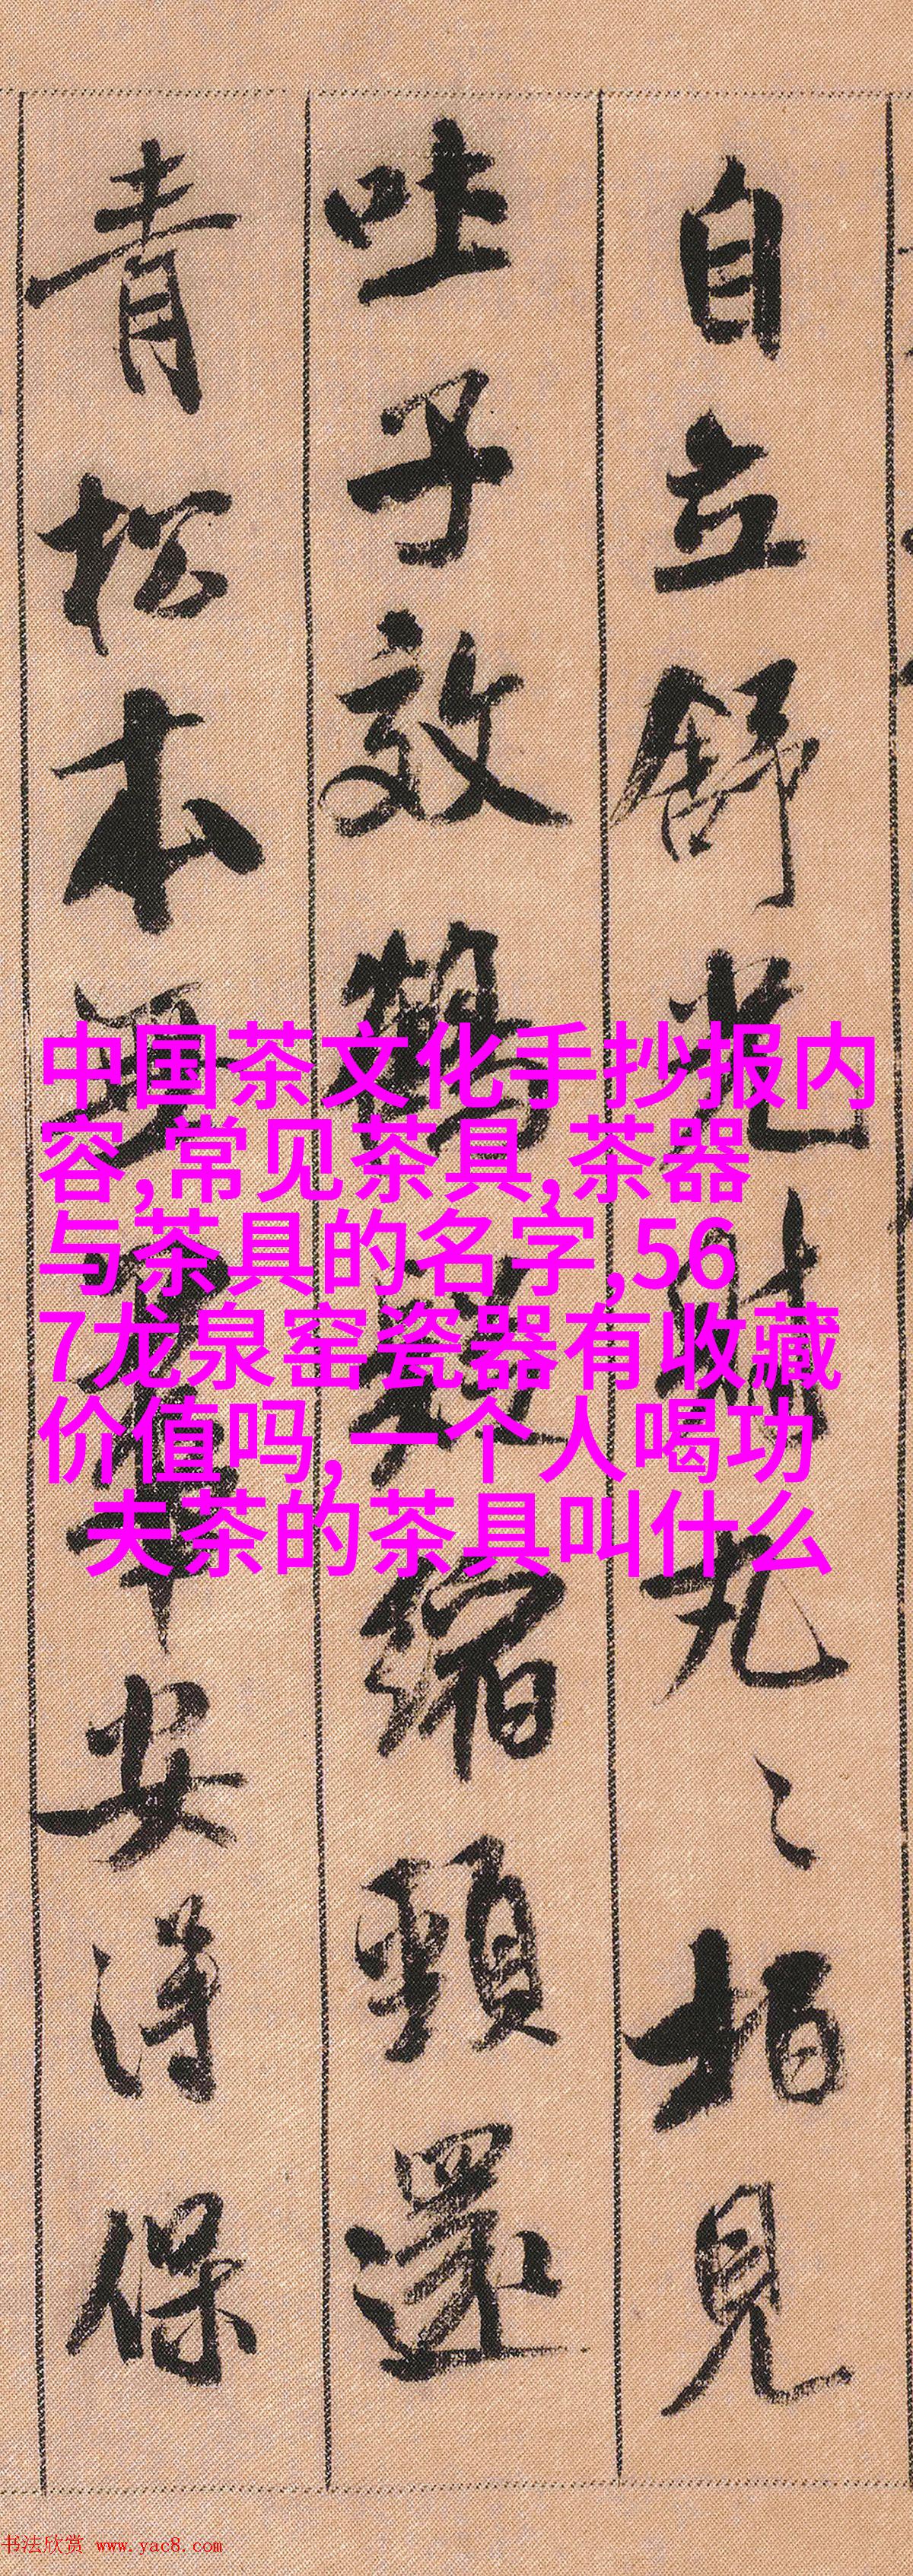 自立舒光射丸〻柏見
吐子效鶴疑縮頸還
青松本無華安得保
中国茶文化手抄报内
容,常见茶具,茶器
与茶具的名字,56
7龙泉窑瓷器有收藏
价值吗,一个人喝功
夫茶的茶具叫什么
书法欣赏 www.yac8.com